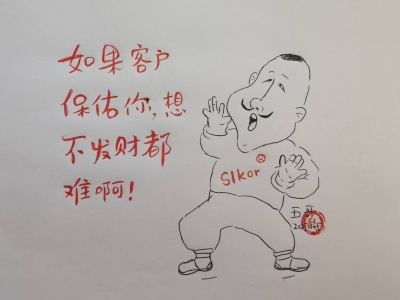 如果客户
保佑你,想
不发财都
难啊!
Slkor®
五哥